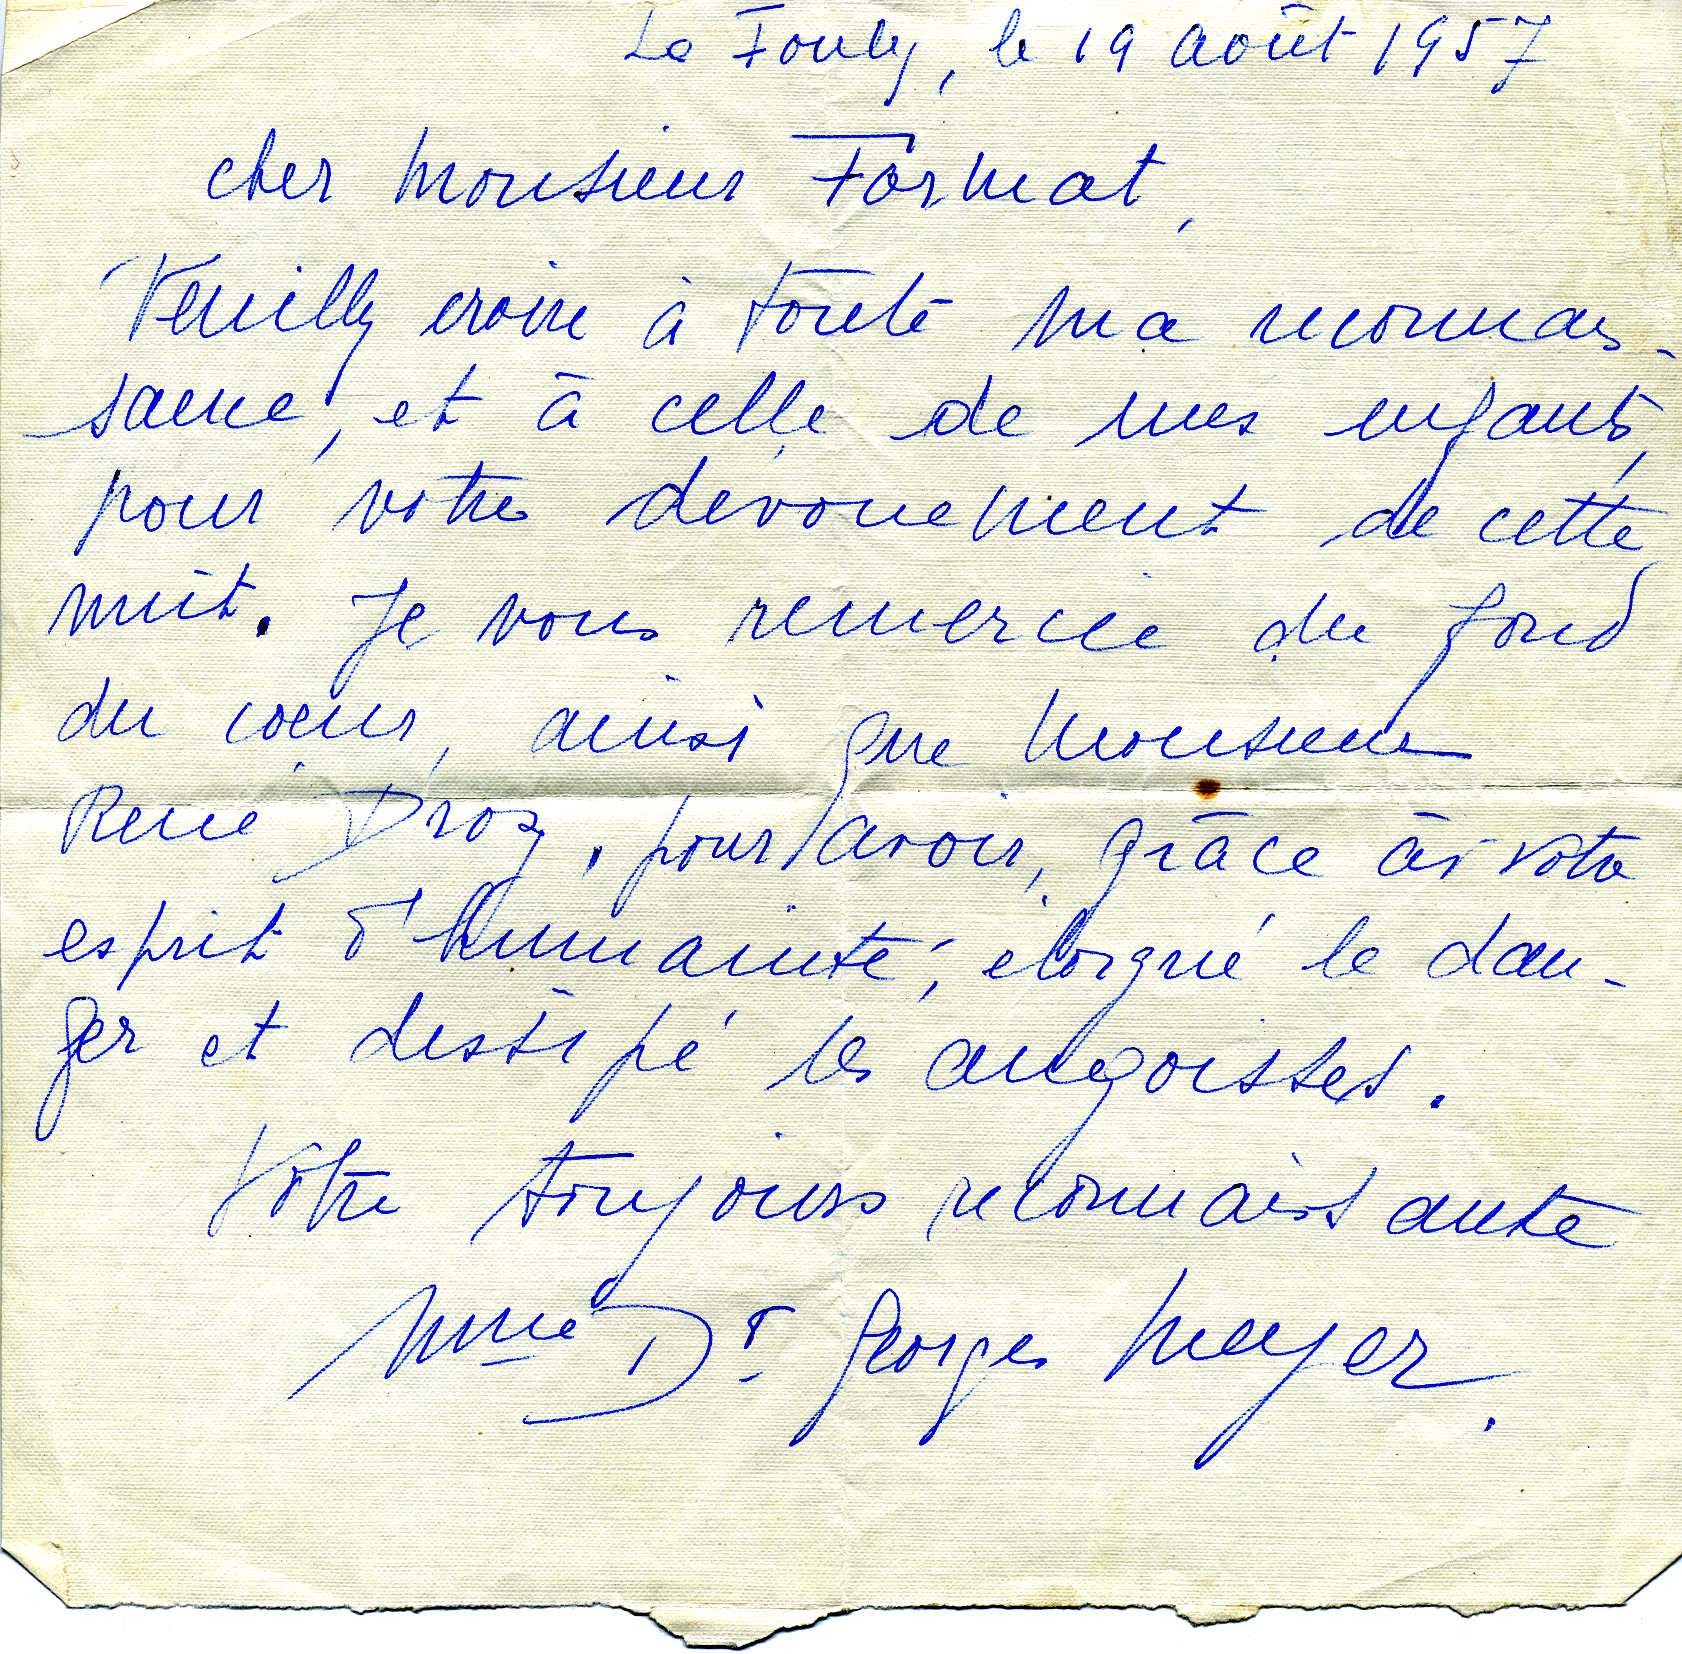 La Fouly, le 19 août 1957
cher Monsieur Format,
Veuillez croire à toute ma reconnais-
sance, et à celle de mes enfants,
pour votre dévouement de cette
nuit. Je vous remercie du fond
du coeur, ainsi que Monsieur
René Droz, pour avoir, grâce à votre
esprit d'humanité, éloigné le dan-
ger et dissipé les angoisses.
Votre toujours reconnaissante
Mme Dr Georges Meyer.